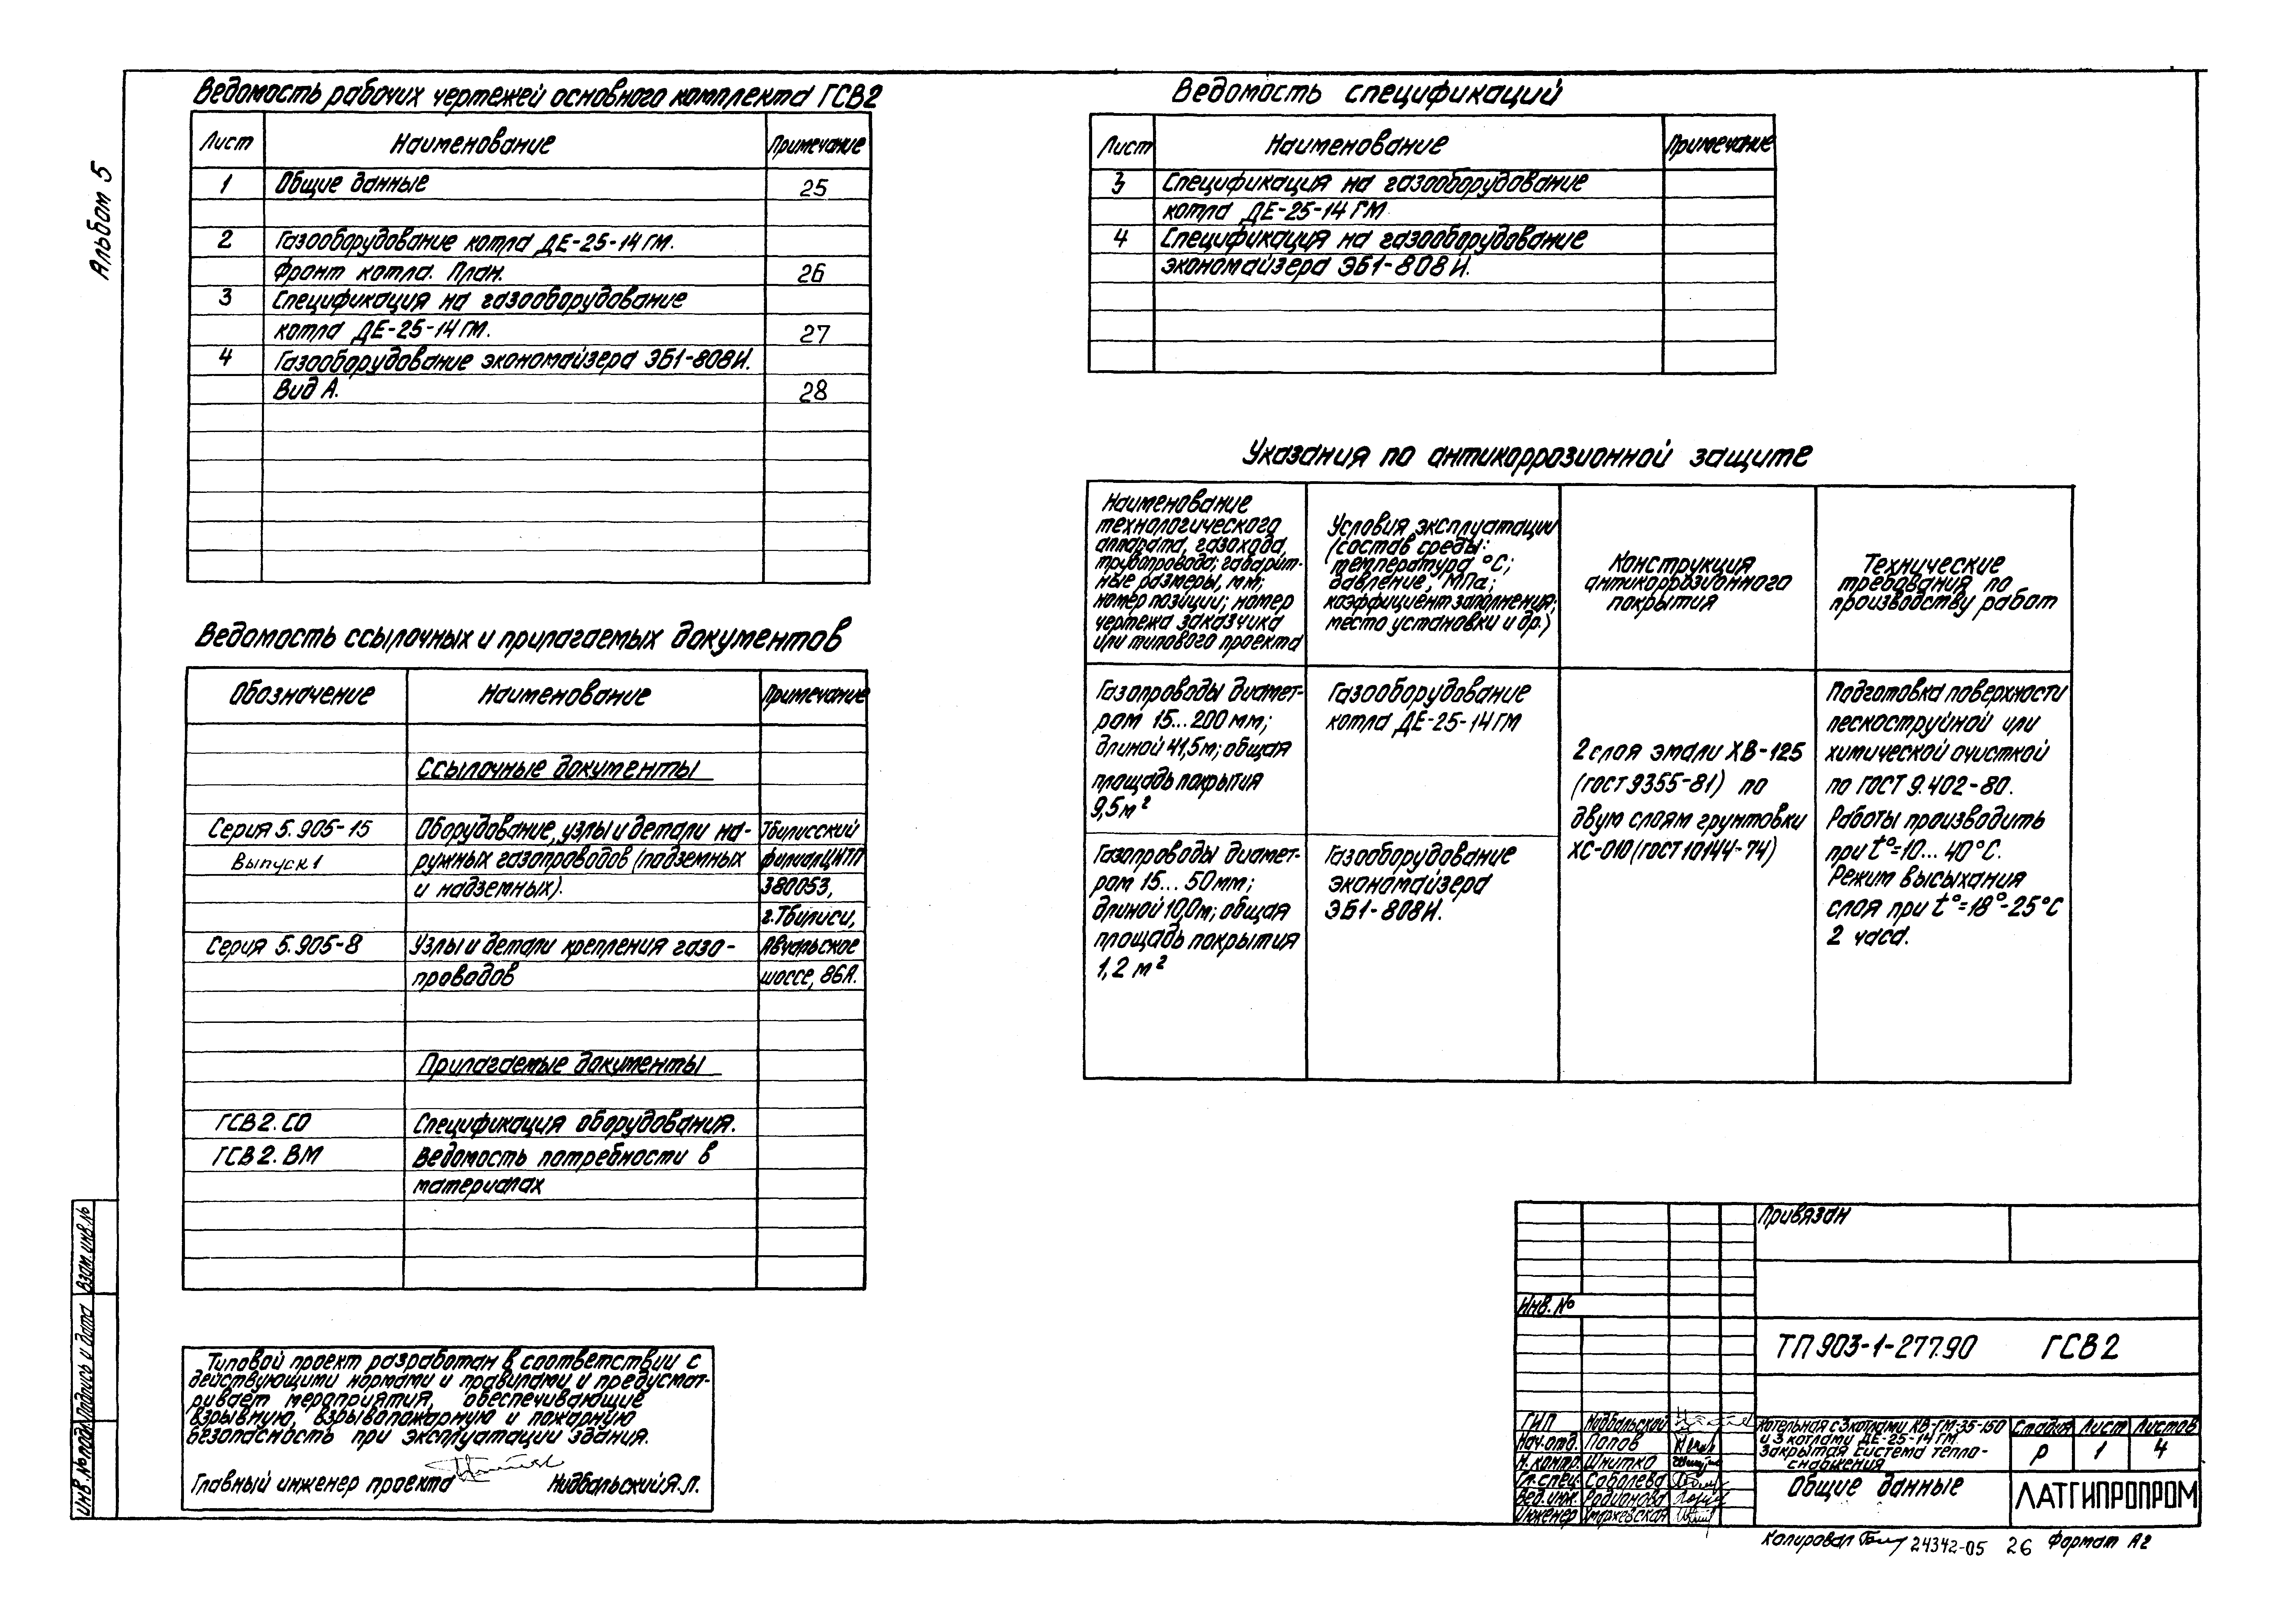 Альбом 5
Ведомость рабочих чертежей основного комплекта ГСВ2
Лист Наименование Примечание
1 Общие данные 25
2 Газооборудование котла ДЕ-25-14ГМ.
Фронт котла. План. 26
3 Спецификация на газооборудование
котла ДЕ-25-14ГМ. 27
4 Газооборудование экономайзера ЭБ1-808И.
Вид А. 28
Ведомость ссылочных и прилагаемых документов
Обозначение Наименование Примечание
Ссылочные документы
Серия 5.905-15 Оборудование, узлы и детали на- Тбилисский
Выпуск 1 ружных газопроводов (подземных филиал ЦИТП
и надземных). 380053,
г.Тбилиси,
Серия 5.905-8 Узлы и детали крепления газо- Авчальское
проводов шоссе, 86А.
Прилагаемые документы
ГСВ2.СО Спецификация оборудования.
ГСВ2.ВМ Ведомость потребности в
материалах
Типовой проект разработан в соответствии с
действующими нормами и правилами и предусмат-
ривает мероприятия, обеспечивающие
взрывную, взрывопожарную и пожарную
безопасность при эксплуатации здания.
Главный инженер проекта Нидбальский Я.Л.
Ведомость спецификаций
Лист Наименование Примечание
3 Спецификация на газооборудование
котла ДЕ-25-14ГМ
4 Спецификация на газооборудование
экономайзера ЭБ1-808И.
Указания по антикоррозионной защите
Наименование
технологического
аппарата, газохода,
трубопровода; габарит-
ные размеры, мм;
номер позиции; номер
чертежа заказчика
или типового проекта
Условия эксплуатации
(состав среды:
температура °С;
давление, МПа;
коэффициент заполнения;
место установки и др.)
Конструкция
антикоррозионного
покрытия
Технические
требования по
производству работ
Газопроводы диамет-
ром 15...200мм;
длиной 41,5м; общая
площадь покрытия
9,5м²
Газооборудование
котла ДЕ-25-14ГМ
Газопроводы диамет-
ром 15...50мм;
длиной 10,0м; общая
площадь покрытия
1,2 м²
Газооборудование
экономайзера
ЭБ1-808И.
2 слоя эмали ХВ-125
(ГОСТ 9355-81) по
двум слоям грунтовки
ХС-010 (ГОСТ 10144-74)
Подготовка поверхности
пескоструйной или
химической очисткой
по ГОСТ 9.402-80.
Работы производить
при t°=10...40°С.
Режим высыхания
слоя при t°=18°-25°С
2 часа.
Привязан
Инв. №
ТП 903-1-277.90 ГСВ2
ГИП Нидбальский
Нач.отд. Попов
Н.контр. Шнитко
Гл.спец. Соболева
Вед.инж. Родионова
Инженер
Котельная с 3 котлами КВ-ГМ-35-150
и 3 котлами ДЕ-25-14ГМ
Закрытая система тепло-
снабжения
Стадия Лист Листов
Р 1 4
Общие данные
ЛАТГИПРОПРОМ
Инв.№подл. Подпись и дата Взам.инв.№
Копировал 24342-05 26 Формат А2